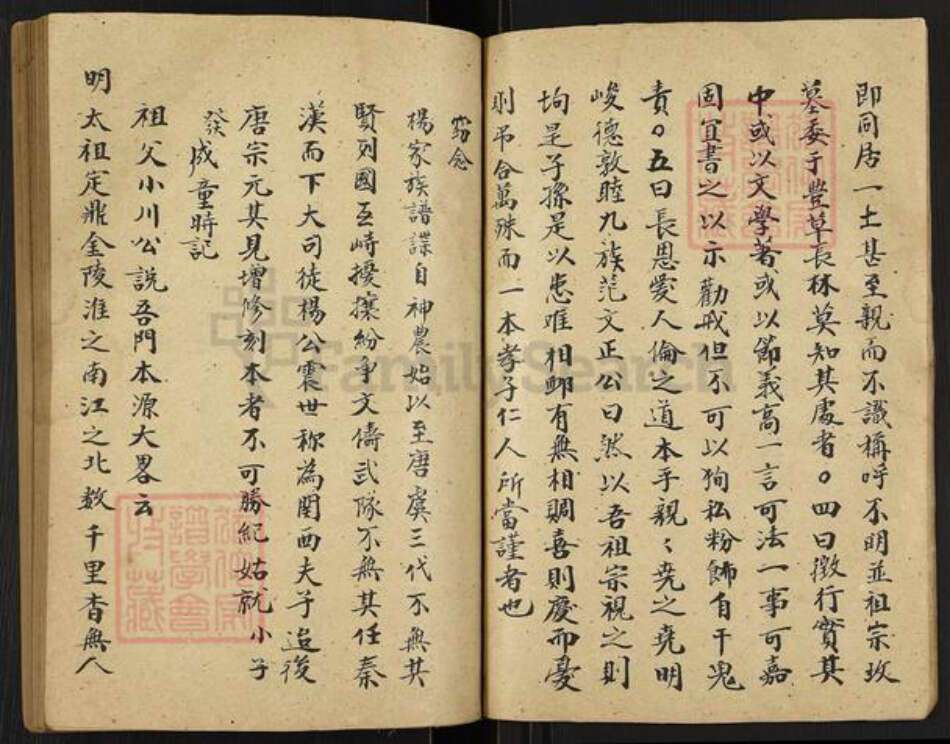 即同居一土甚至親而不識稱呼不明並祖宗坟
墓委于豐草長林莫知其處者。四曰徵行實其
中或以文學著或以節義高一言可法一事可嘉
固宜書之以示勸戒但不可以狥私粉飾自干鬼
責。五曰長恩愛人倫之道本乎親〻堯之堯明
峻德敦睦九族范文正公曰然以吾祖宗視之則
均是子孫是以患难相卹有無相賙喜則慶而憂
則吊合萬殊而一本孝子仁人所當謹者也
窃念
楊家族譜諜自神農始以至唐虞三代不無其
賢列國互崎擾攘紛爭文儔武隊不無其任秦
漢而下大司徒楊公震世称為関西夫子迨後
唐宗元其見增修刻本者不可勝紀姑就小子
發成童時記
祖父小川公説吾門本源大畧云
明太祖定鼎金陵淮之南江之北数千里杳無人
FamilySearch